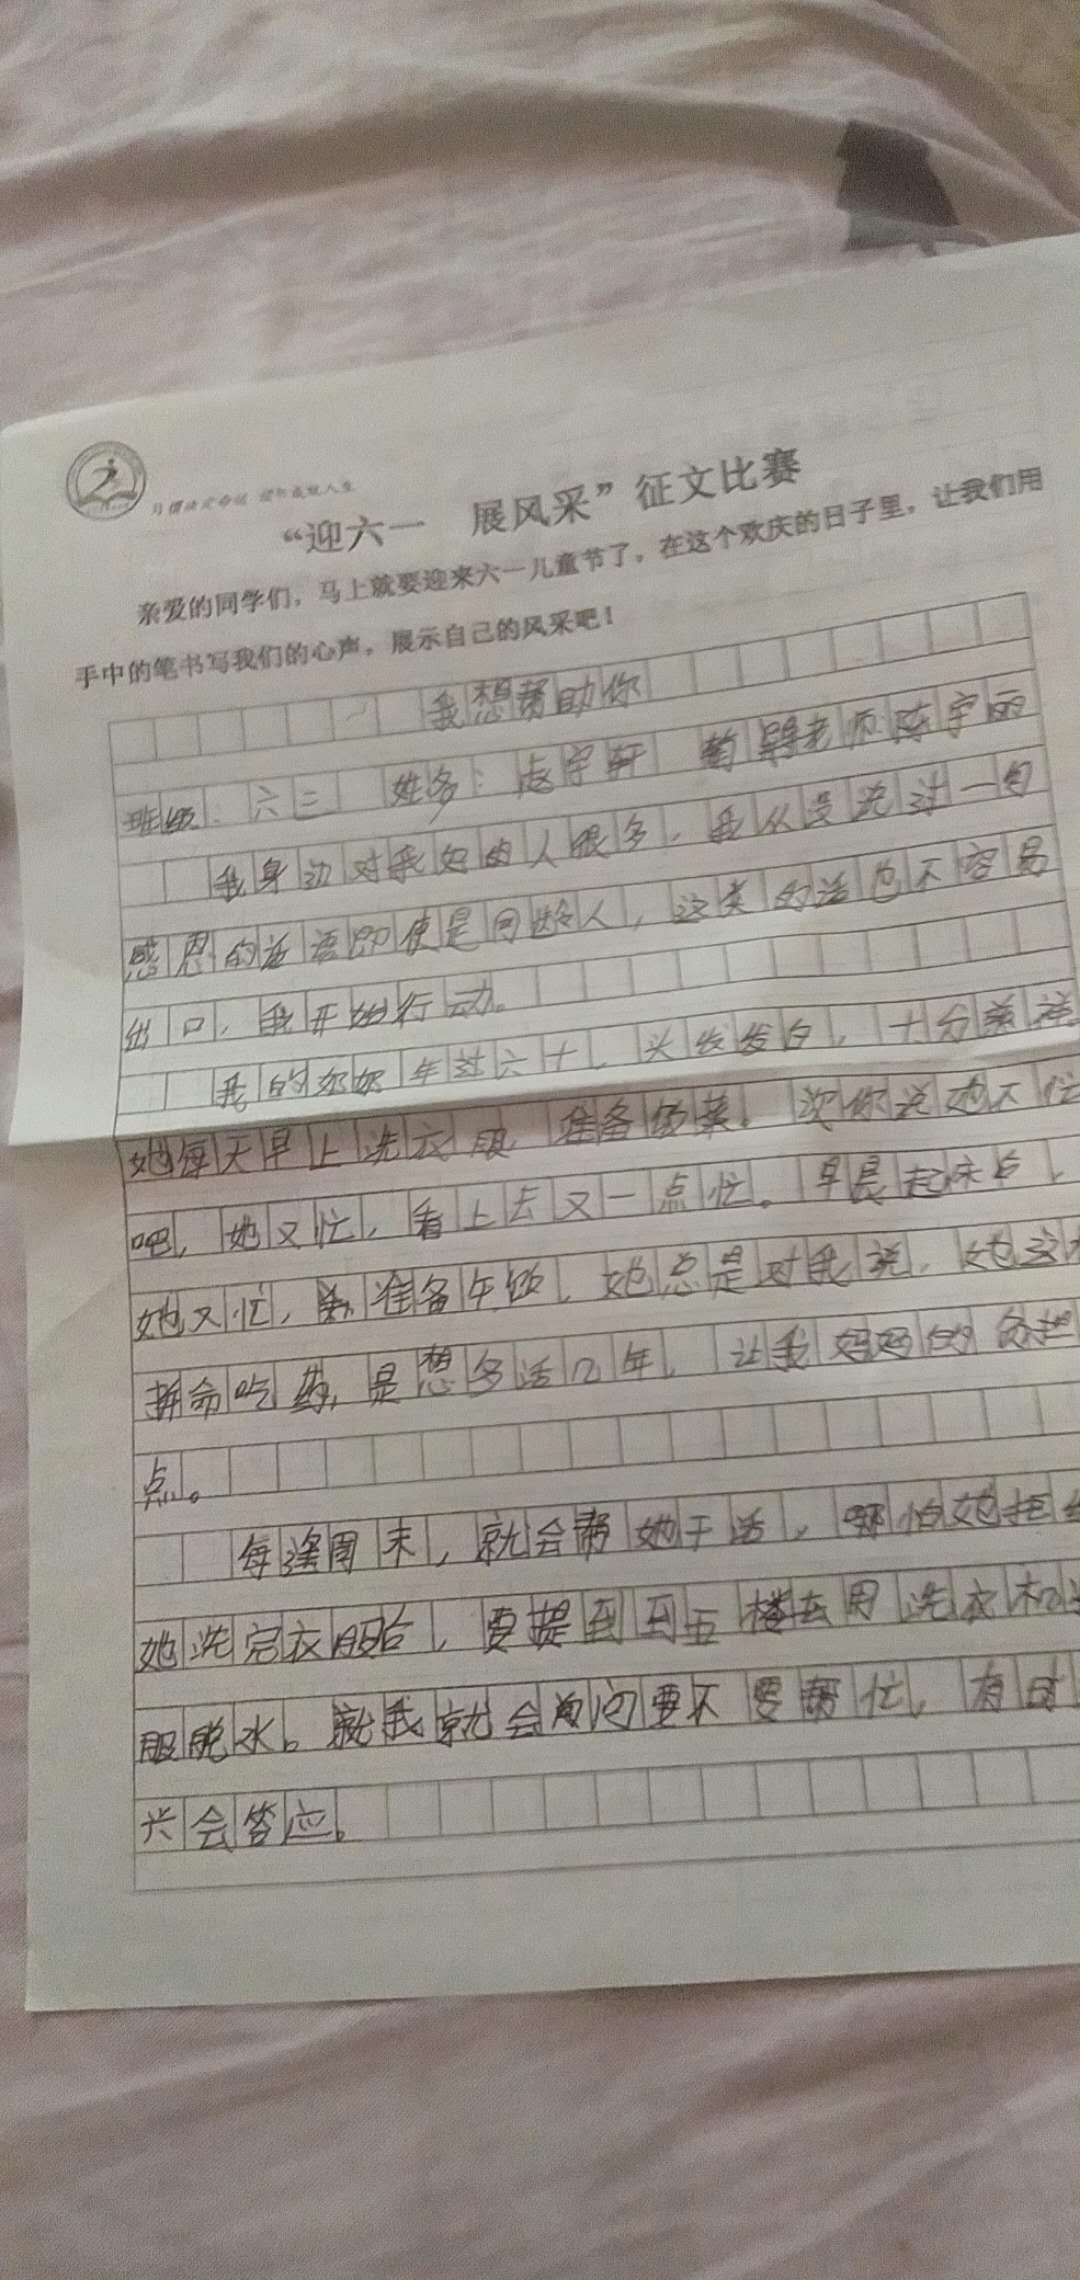 “迎六一 展风采”征文比赛
亲爱的同学们，马上就要迎来六一儿童节了，在这个欢庆的日子里，让我们用
手中的笔书写我们的心声，展示自己的风采吧！
我想帮助你
班级：六三 姓名： 宇轩 老师陈宇丽
我身边对我好的人很多，我从没说过一句
感恩的话语即使是同龄人，这类的话也不容易
出口，我开始行动。
我的奶奶年过六十，头发发白，十分慈祥
她每天早上洗衣服，准备饭菜。 你说她不忙
吧，她又忙，看上去又一点忙。早晨起床后，
她又忙，准备午饭，她总是对我说，她这么
拼命吃药，是想多活几年，让我妈妈的
点。
每逢周末，就会帮她干活，哪怕她
她洗完衣服后，要提到到五楼去用洗衣机
服脱水。我就会问要不要帮忙，有时
兴会答应。